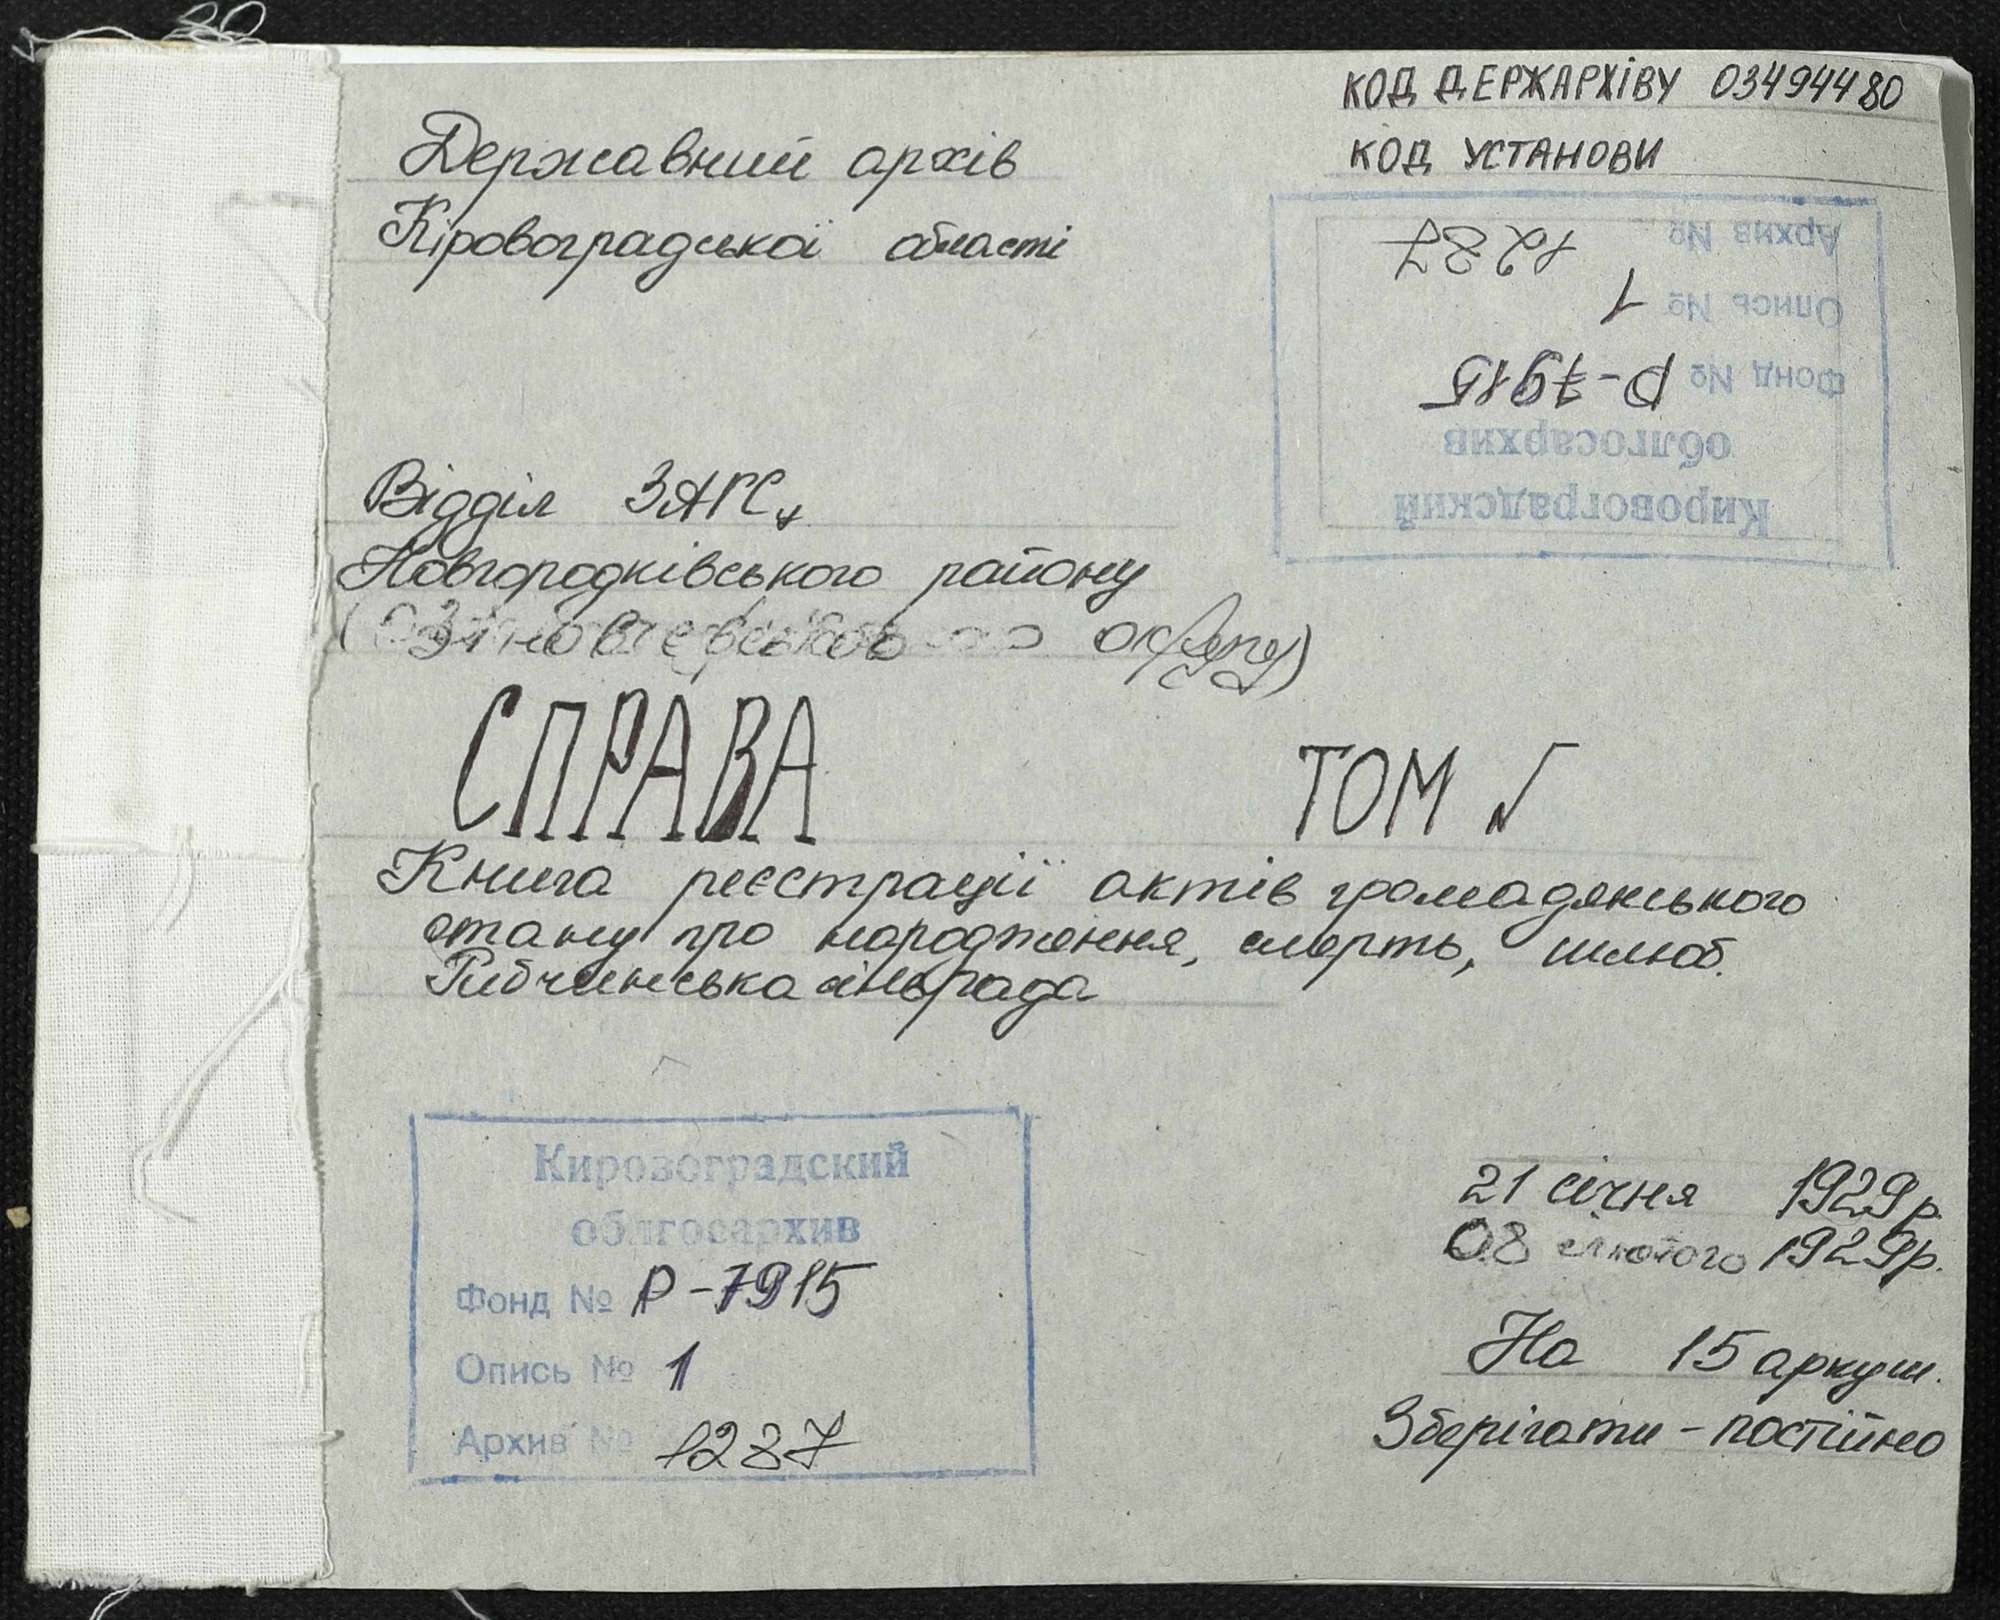 КОД ДЕРЖАРХІВУ 03494480
КОД УСТАНОВИ
Державний архів
Кіровоградської області
Кировоградский
облгосархив
Фонд № Р-7915
Опись № 1
Архив № 1287
Відділ ЗАГС
Новгородківського району
(Зінов'євського округу)
СПРАВА ТОМ
Книга реєстрації актів громадянського
стану про народження, смерть, шлюб.
Рибчинська сільрада
Кировоградский
облгосархив
Фонд № Р-7915
Опись № 1
Архив № 1287
21 січня 1929р.
08 лютого 1929р.
На 15 аркуш.
Зберігати - постійно